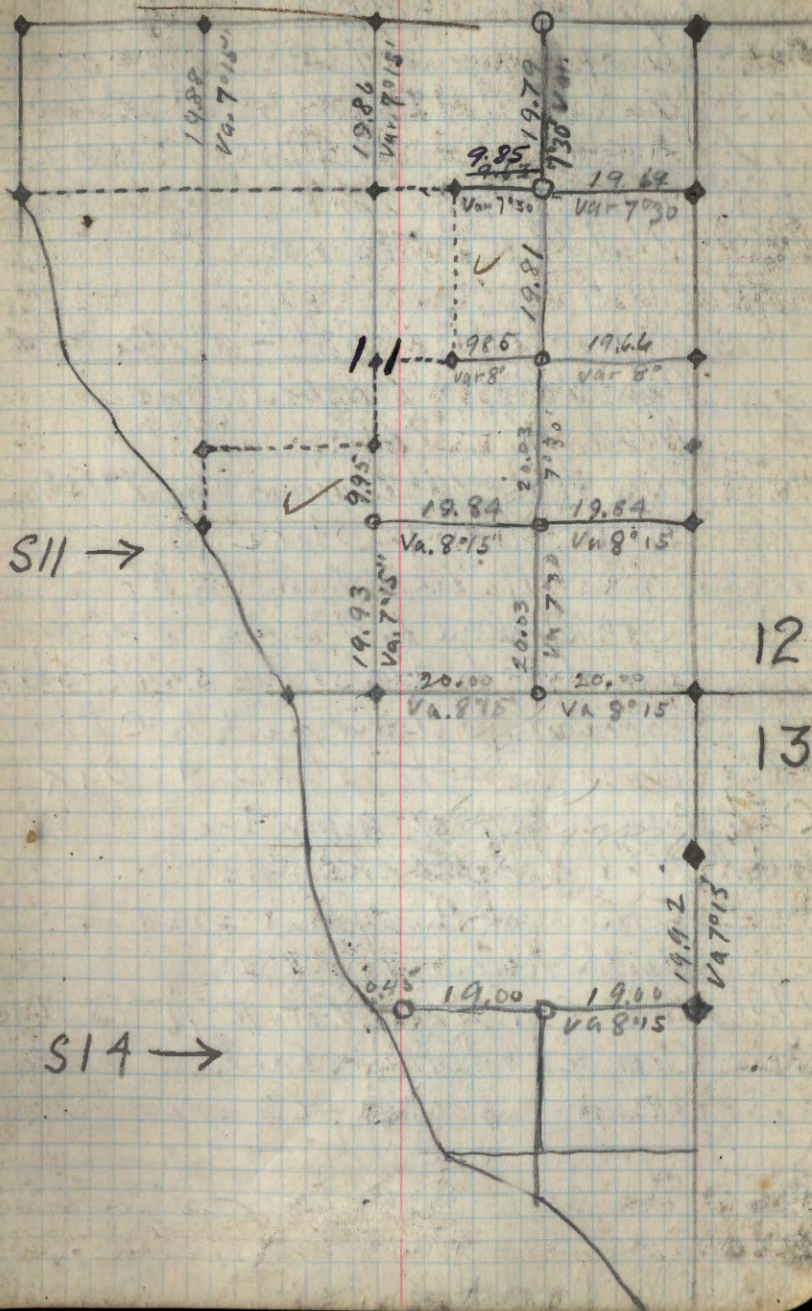 19.88
Va. 7°15'
19.86
Var. 7°15'
19.79
7°30' Var.
9.85
Var 7°30
19.69
Var 7°30
19.81
11
985
Var 8°
19.64
Var 8°
20.03
7°30'
9.95
19.84
Va. 8°15'
19.84
Va 8°15'
S11 →
19.93
Va. 7°15'
20.03
Va 7°30
12
20.00
Va. 8°15
20.00
Va 8°15'
13
19.92
Va 7°15'
19.00
19.00
Va 8°15
S14 →